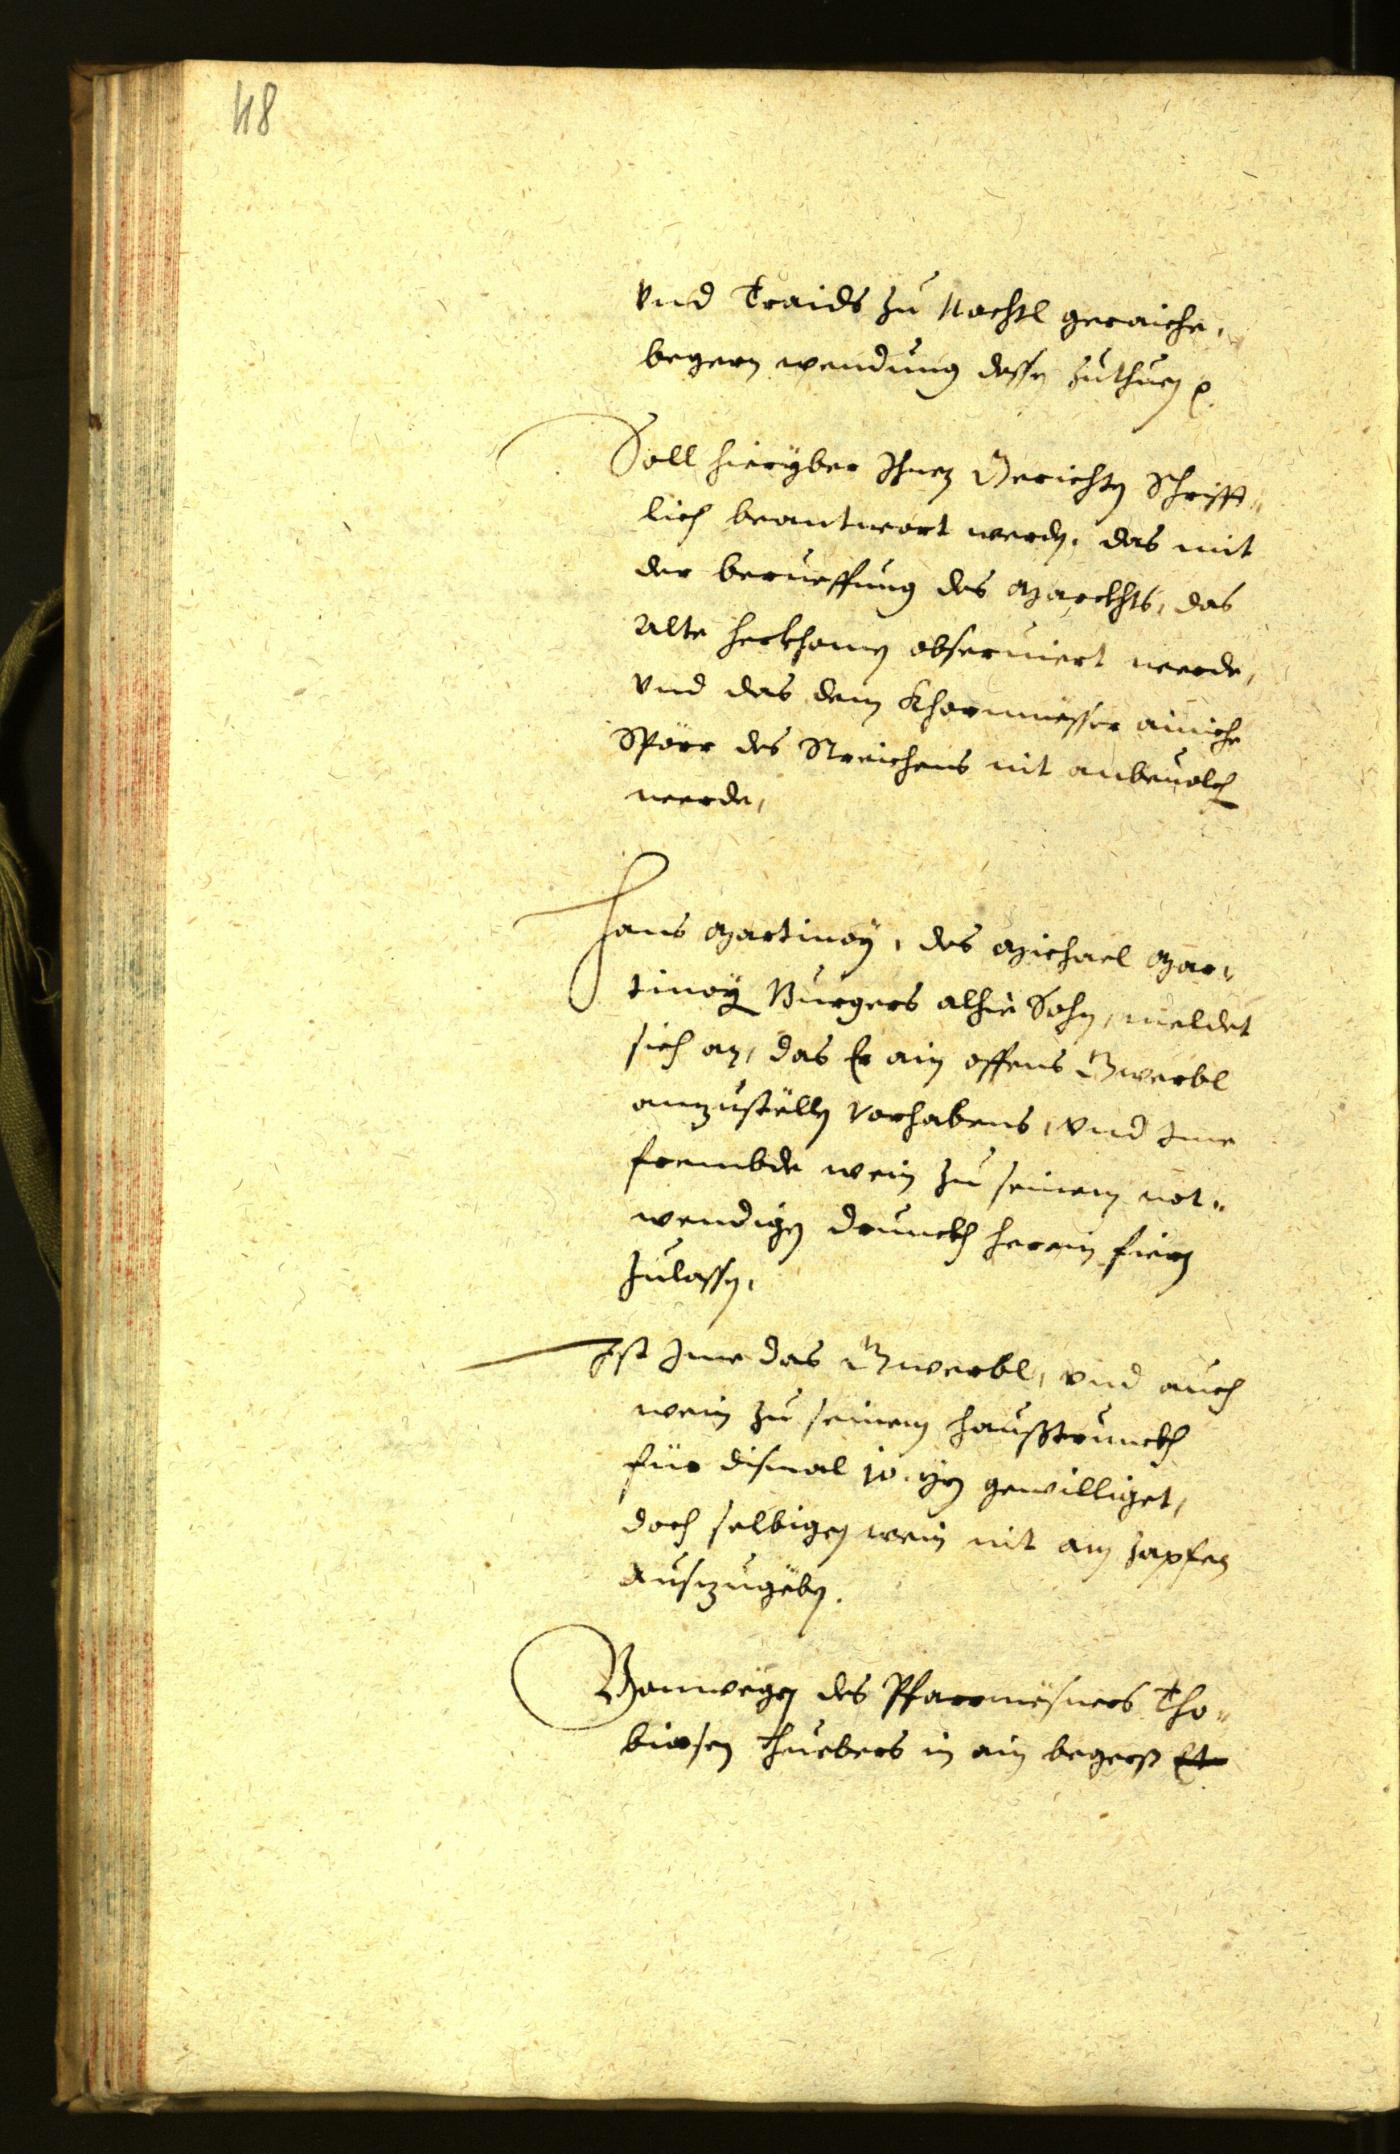 48
vnd Traids zu Nachtl geraiche,
begern wendung dessen zuthuen p.
Soll hierÿber Ihnen Gerichten Schrifft„
lich beantwort werden, das mit
der beruеffung des Marckhts, das
Alte herkhomen obseruiert werde,
vnd das dem Khornmësser ainiche
Spörr des Streichens nit anbeuolchen
werde,
Hans Martinoÿ, des Michael Mar„
tinoÿ Burgers alhie Sohn, meldet
sich an, das Er ain offens Gwerbl
anzustöllen vorhabens, vnd Ime
frembde wein zu seinem not„
wendigen drunckh herein fiern
zulassen,
Ist Ime das Gwerbl, vnd auch
wein zu seinem haußtrunckh
für dismal 10. Yrn gewilliget,
doch selbigen wein nit am zapfen
auszugëben.
Vonwegen des Pfarrmësners Tho„
biasen Huebers in ain begerß Et